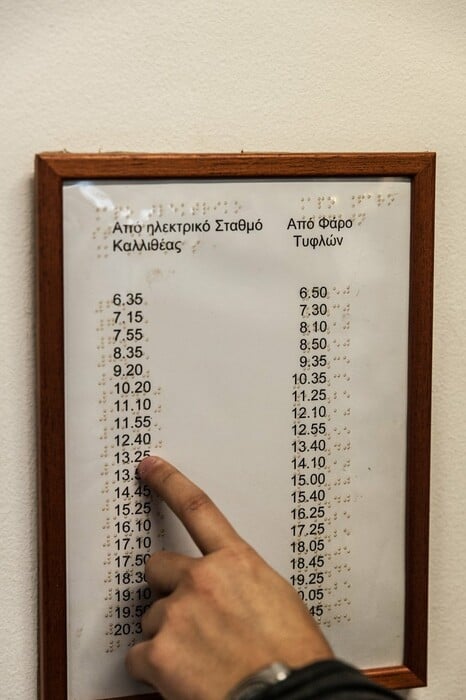 Από ηλεκτρικό Σταθμό Από Φάρο
Καλλιθέας Τυφλών
6.35 6.50
7.15 7.30
7.55 8.10
8.35 8.50
9.20 9.35
10.20 10.35
11.10 11.25
11.55 12.10
12.40 12.55
13.25 13.40
14.10
14.45 15.00
15.25 15.40
16.10 16.25
17.10 17.25
17.50 18.05
18.30 18.45
19.10 19.25
19.50